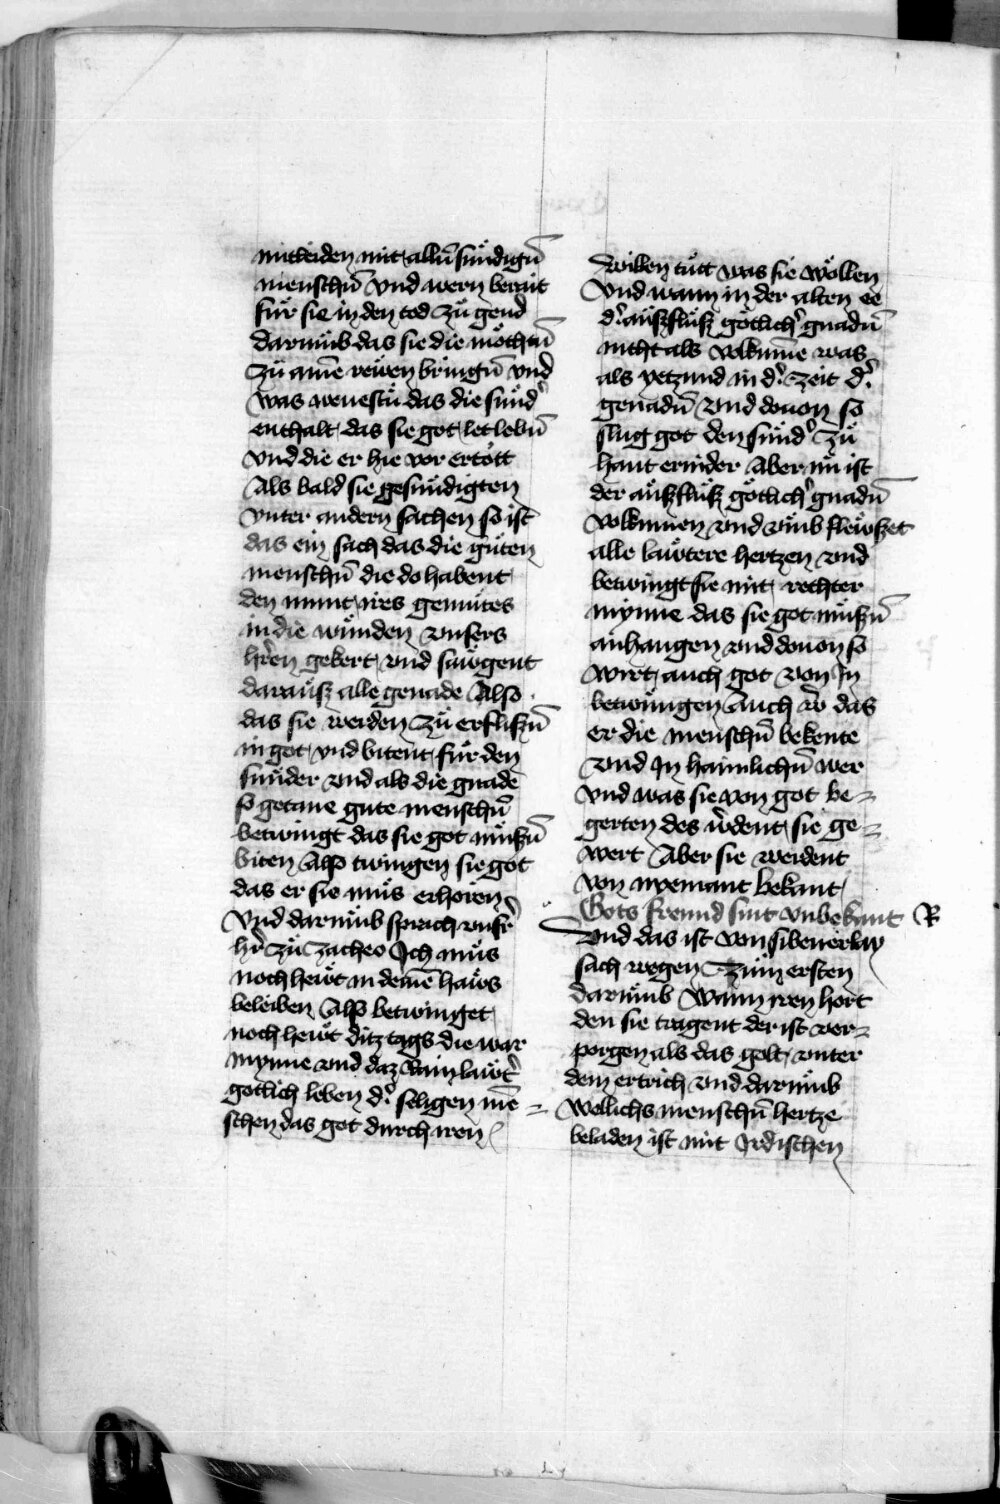 mitleiden mit allñ sündigñ
menschñ vnd wern berait
für sie in den tod zü gend
darümb das sie die möchtñ
zü ainē reẅen bringñ vnd
was wenestu das die sünd᷑
enthalt das sie got let lebñ
vnd die er hie vor ertött
Als bald sie gesündigten
vnter andern sachen so ist
das ein sach das die güten
menschñ die do habent
den munt ires gemütes
in die wünden vnsers
hr̄en gekert vnd saẅgent
daraüsz alle genade Also
das sie werden zü erfliszñ
in got vnd bitent für den
sünder vnd als die gnade
so getane gute menschñ
betwingt das sie got müszñ
biten Also twingen sie got
das er sie müs erhören
Vnd darümb sprach vnsr᷑
hr̄ zü zacheo Ich müs
noch heẅt in deinē haẅs
beleiben Also betwinget
noch heẅt ditz tags die war
mynne vnd daz rain laẅt᷑
gotlich leben d᷑ seligen mē=
schen das got durch iren
willen tüt was sie wöllen
Vnd wann in der alten ee
d᷑ aüszflüsz götlich᷑ gnadñ
nicht als volkumē was
als yetzund in d᷑ zeit d᷑
genadñ vnd douon so
slug got den sünd᷑ zü
hant ernider Aber nü ist
der aüszflüsz götlich᷑ gnadñ
volkumen vnd vmb fleẅszet
alle laẅtere hertzen vnd
betwingt sie mit rechter
mynne das sie got müszñ
anhangen vnd douon so
wirt auch got von In
betwüngen Auch w᷑ das
er die menschñ bekente
vnd In haimlichñ wer
Vnd was sie von got be=
gerten des w᷑dent sie ge=
wert Aber sie werdent
von nyemant bekant
Gots freund sint vnbekant R
Vnd das ist von sibenerlay
sach wegen Züm ersten
darümb wann iren hort
den sie tragent der ist ver=
porgen als das golt vnter
dem ertrich vnd darümb
wellichs menschñ hertze
beladen ist mit Irdischen